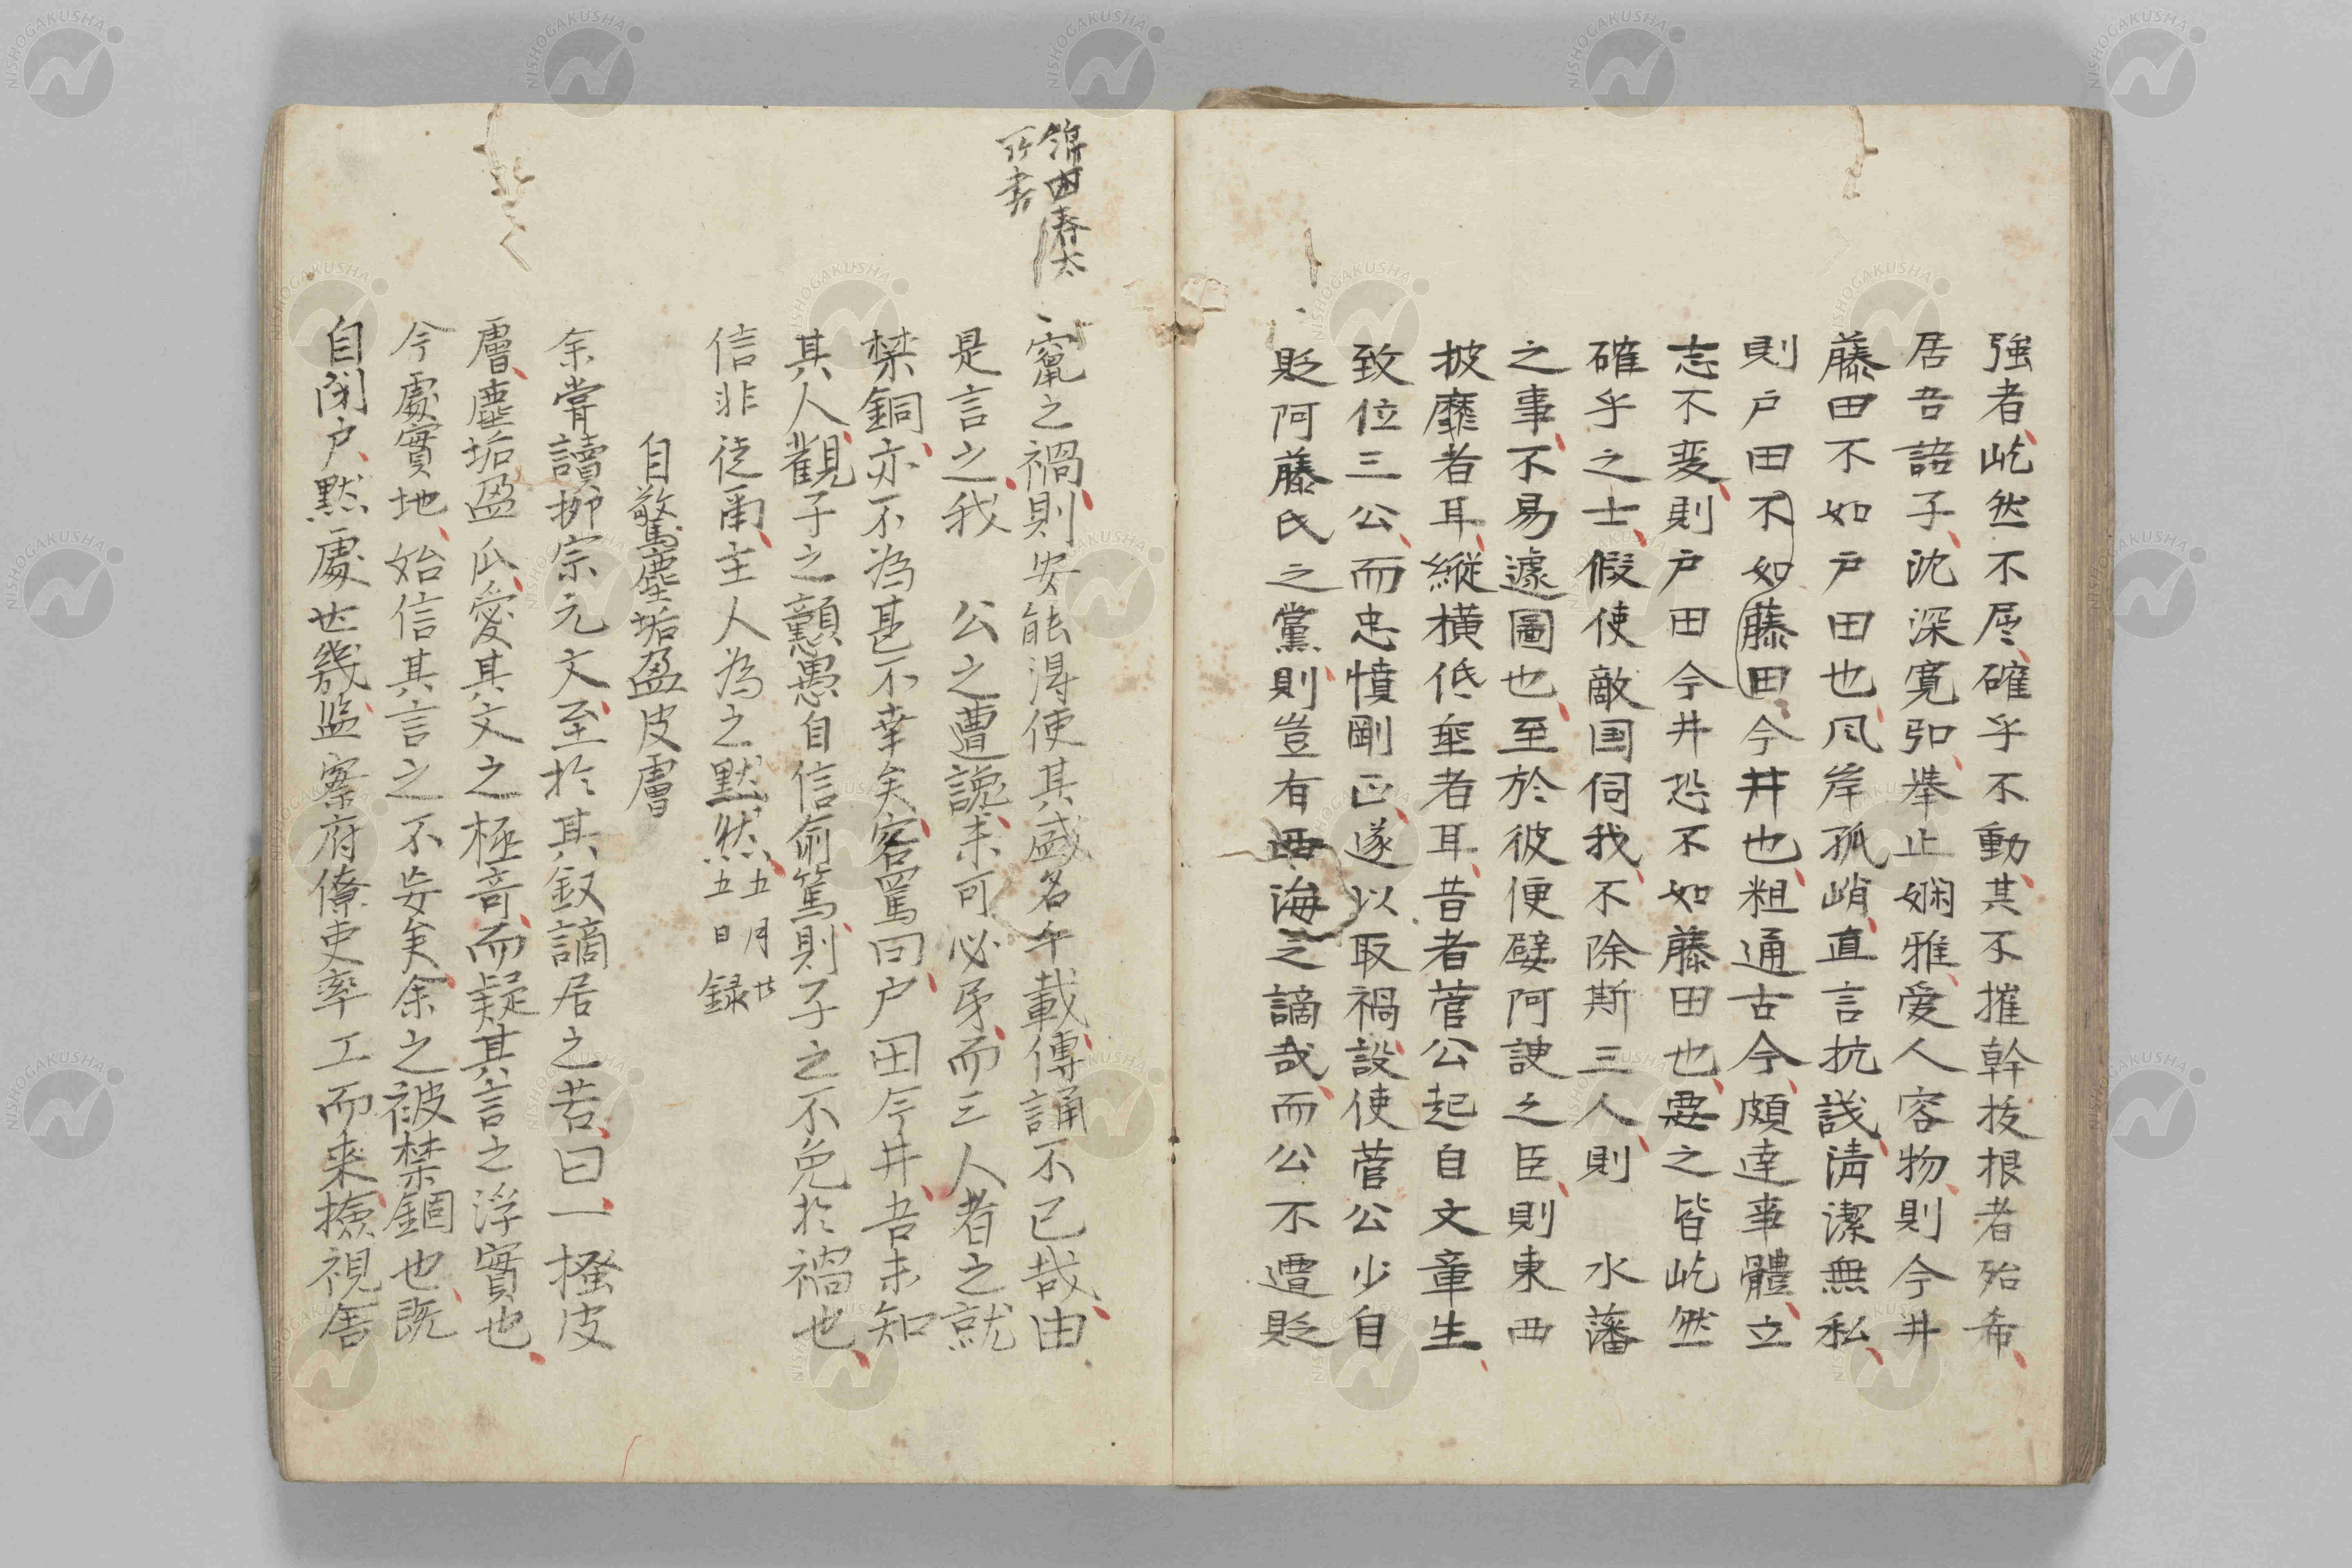 強者屹然不屈確乎不動其不摧幹抜根者殆希
居吾語子沈深寛弘舉止嫻雅愛人容物則今井
藤田不如戸田也風岸孤峭直言抗議清潔無私
則戸田不如藤田今井也粗通古今頗達事體立
志不変則戸田今井恐不如藤田也要之皆屹然
確乎之士假使敵国伺我不除斯三人則　水藩
之事不易遽圖也至於彼便嬖阿諛之臣則東西
披靡者耳縦横低垂者耳昔者菅公起自文章生
致位三公而忠憤剛正遂以取禍設使菅公少自
貶阿藤氏之黨則豈有西海之謫哉而公不遭貶
竄之禍則安能得使其盛名千載傳誦不已哉由
是言之我　公之遭讒未可必 而三人者之就
禁錮亦不為甚不幸矣客罵曰戸田今井吾未知
其人觀子之顓愚自信俞篤則子之不免於禍也
信非徒爾主人為之黙然五月廿五日録
自驚塵垢盈皮膚
余嘗讀柳宗元文至於其叙謫居之苦曰一搔皮
膚塵垢盈爪愛其文之極奇而疑其言之浮實也
今處實地始信其言之不妄矣余之被禁錮也既
自閉戸黙處世幾 監察府僚吏率工而来撿視舎
錦田春太
所書
NISHOGAKUSHA